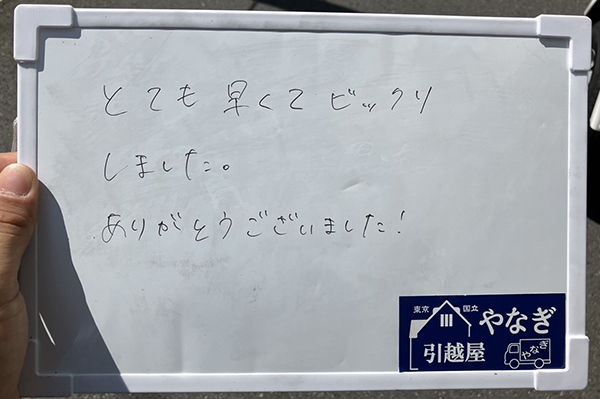 とても早くてビックリ
しました。
ありがとうございました!
東京 国立
やなぎ
引越屋
やなぎ